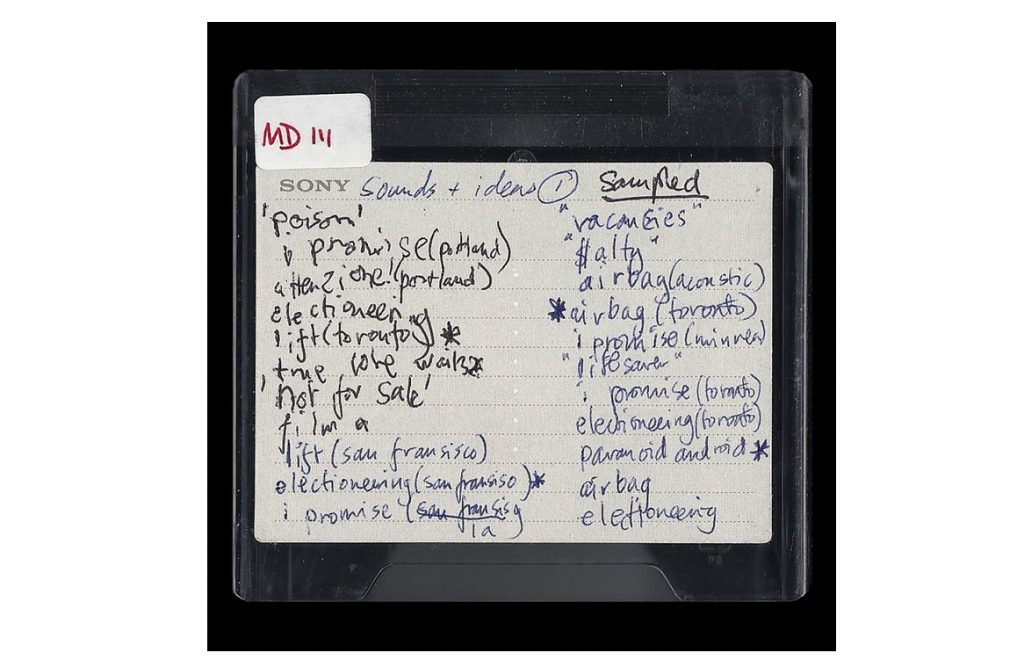 MD 111
SONY sounds + ideas 1 sampled
'poison'
i promise (portland)
attenzione! (portland)
electioneering
lift (toronto) *
true love waits *
'not for sale'
film a
lift (san fransisco)
electioneering (san fransiso) *
i promise (san fransis
la
"vacancies"
"$alty"
airbag (acoustic)
* airbag (toronto)
i promise
"lifesaver"
i promise (toronto)
electioneering (toronto)
paranoid android *
airbag
electioneering